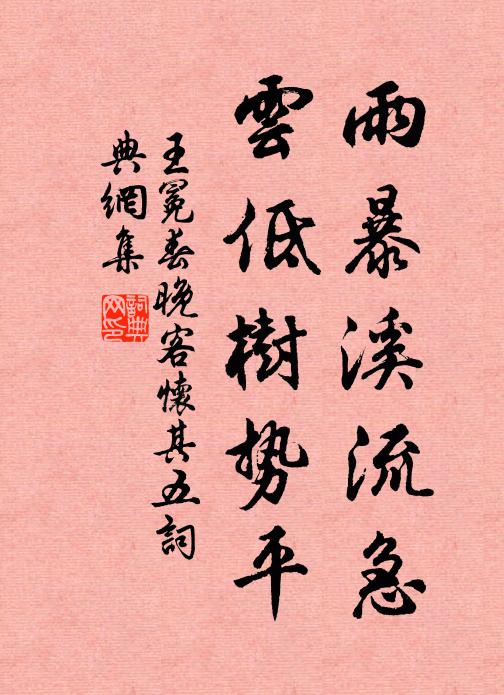 雨暴溪流急
雲低樹势平
王冕春晚客懷其五詞
典網集
詞典
网印